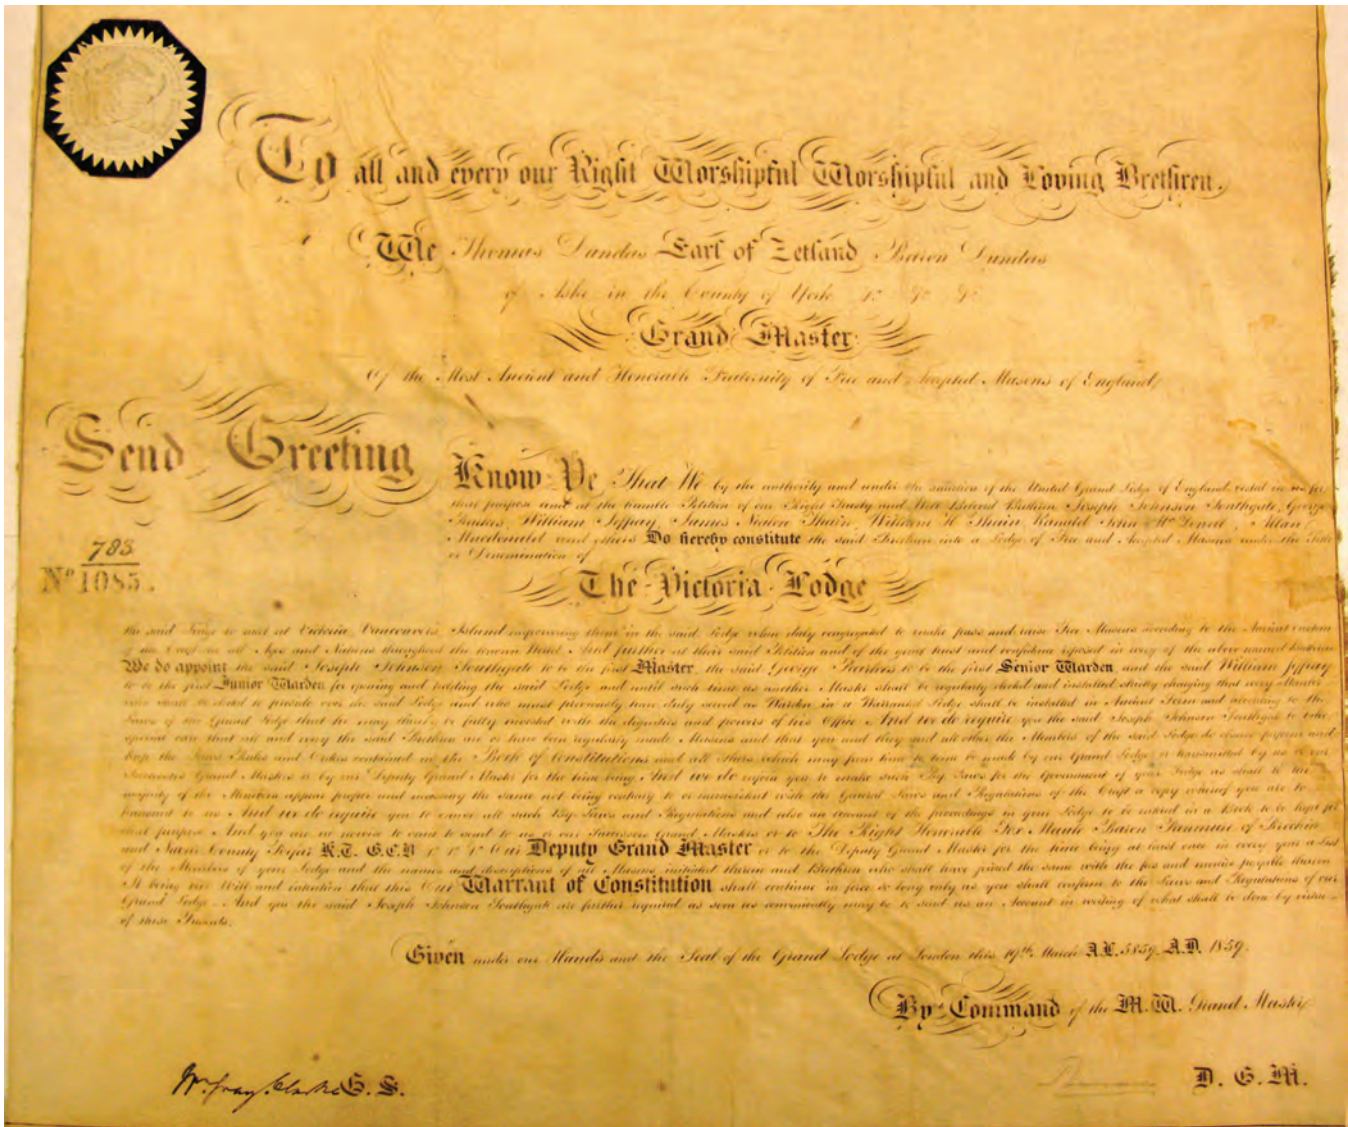 To all and every our Right Worshipful Worshipful and Loving Brethren,
We Thomas Dundas Earl of Zetland Baron Dundas
of Aske in the County of York
Grand Master
Of the Most Ancient and Honorable Fraternity of Free and Accepted Masons of England,
Send Greeting
Know Ye That We by the authority and under the sanction of the United Grand Lodge of England vested in us for
that purpose and at the humble Petition of our Right Trusty and Well Beloved Brethren Joseph Johnson Southgate, George
William Jeffray, James Thain, William H. Thain, John Allan
Macdonald and others Do hereby constitute the said Brethren into a Lodge of Free and Accepted Masons under the Title
or Denomination of
783
No 1085.
The Victoria Lodge
the said Lodge to meet at Victoria, Vancouvers Island empowering them in the said Lodge when duly congregated to make pass and raise Free Masons according to the Ancient custom
of the Craft in all Ages and Nations throughout the known World And further at their said Petition and of the great trust and confidence reposed in every of the above named Brethren
We do appoint the said Joseph Johnson Southgate to be the first Master, the said George to be the first Senior Warden, and the said William Jeffray
to be the first Junior Warden for opening and holding the said Lodge and until such time as another Master shall be regularly elected and installed strictly charging that every Member
who shall be elected to preside over the said Lodge and who must previously have duly served as Warden in a Warranted Lodge shall be installed in Ancient Form and according to the
Laws of the Grand Lodge that he may thereby be fully invested with the dignities and powers of his Office And we do require you the said Joseph Johnson Southgate to take
special care that all and every the said Brethren are or have been regularly made Masons and that you and they and all other the Members of the said Lodge do observe perform and
keep the Laws Rules and Orders contained in the Book of Constitutions and all others which may from time to time be made by our Grand Lodge or transmitted by us or our
Successors Grand Masters or by our Deputy Grand Master for the time being And we do enjoin you to make such By Laws for the Government of your Lodge as shall to the
majority of the Members appear proper and necessary the same not being contrary to or inconsistent with the General Laws and Regulations of the Craft a copy whereof you are to
transmit to us And we do require you to cause all such By Laws and Regulations and also an account of the proceedings in your Lodge to be entered in a Book to be kept for
that purpose And you are in nowise to omit to send to us or our Successors Grand Masters or to The Right Honorable Fox Maule Baron Panmure of Brechin
and Navar County Forfar K.T. G.C.B Our Deputy Grand Master or to the Deputy Grand Master for the time being at least once in every year a List
of the Members of your Lodge and the names and descriptions of all Masons initiated therein and Brethren who shall have joined the same with the fees and monies payable thereon
It being our Will and intention that this Our Warrant of Constitution shall continue in force so long only as you shall conform to the Laws and Regulations of our
Grand Lodge. And you the said Joseph Johnson Southgate are further required as soon as conveniently may be to send us an Account in writing of what shall be done by virtue
of these Presents.
Given under our Hands and the Seal of the Grand Lodge at London this 19th March A.L. 5859. A.D. 1859.
By Command of the M.W. Grand Master
Wm. Gray Clarke G. S.
D. G. M.